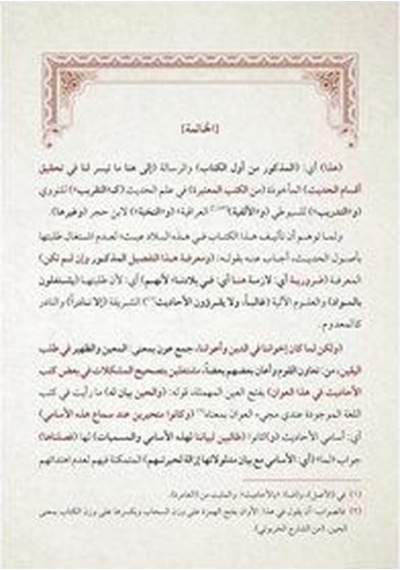 [الخاتمة]
(هذا) أي: (المذكور من أول الكتاب) والرسالة (إلى هنا ما تيسر لنا في تحقيق
أقسام الحديث) المأخوذة (من الكتب المعتبرة) في علم الحديث (كـ«التقريب») للنووي
(و«التدريب») للسيوطي (و«الألفية») العراقية (و«النخبة») لابن حجر (وغيرها).
ولما توهم أن تأليف هذا الكتاب في هذه البلاد عبث؛ لعدم اشتغال طلبتها
بأصول الحديث، أجاب عنه بقوله: (ومعرفة هذا التفصيل المذكور وإن لم تكن)
المعرفة (ضرورية أي: لازمة هنا أي: في بلادنا؛ لأنهم) أي: لأن طلبتها (يشتغلون
بالمواد) والعلوم الآلية (غالباً، ولا يقرؤون الأحاديث) الشريفة (إلا نادراً) والنادر
كالمعدوم.
(ولكن لما كان إخواننا في الدين وأعواننا، جمع عون بمعنى: المعين والظهير في طلب
اليقين، من: تعاون القوم وأعان بعضهم بعضاً، مشتغلين بتصحيح المشكلات في بعض كتب
الأحاديث في هذا العوان) بفتح العين المهملة، قوله: (والحين بيان له) ما رأيت في كتب
اللغة الموجودة عندي مجيء العوان بمعناه (وكانوا متحيرين عند سماع هذه الأسامي)
أي: أسامي الأحاديث (و)كانوا (طالبين لبياننا لهذه الأسامي والمسميات) لها (فصلناها)
جواب «لما» (أي: الأسامي مع بيان مدلولاتها إزالة لحيرتهم) المتمكنة فيهم لعدم اهتدائهم
(١) في (الأصل)، و(ف): «بالأحاديث». والمثبت من (العامرة).
(٢) فالصواب: أن يقول في هذا الأوان بفتح الهمزة على وزن السحاب وبكسرها على وزن الكتاب بمعنى
الحين. (من الشارح الخربوتي).